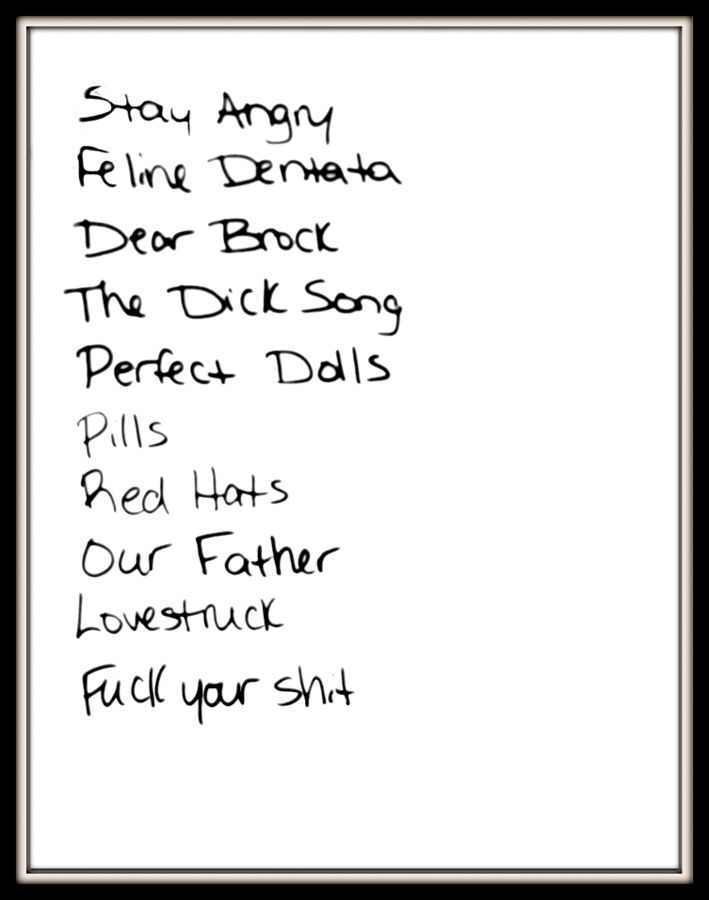 Stay Angry
Feline Dentata
Dear Brock
The Dick Song
Perfect Dolls
Pills
Red Hats
Our Father
Lovestruck
Fuck your shit